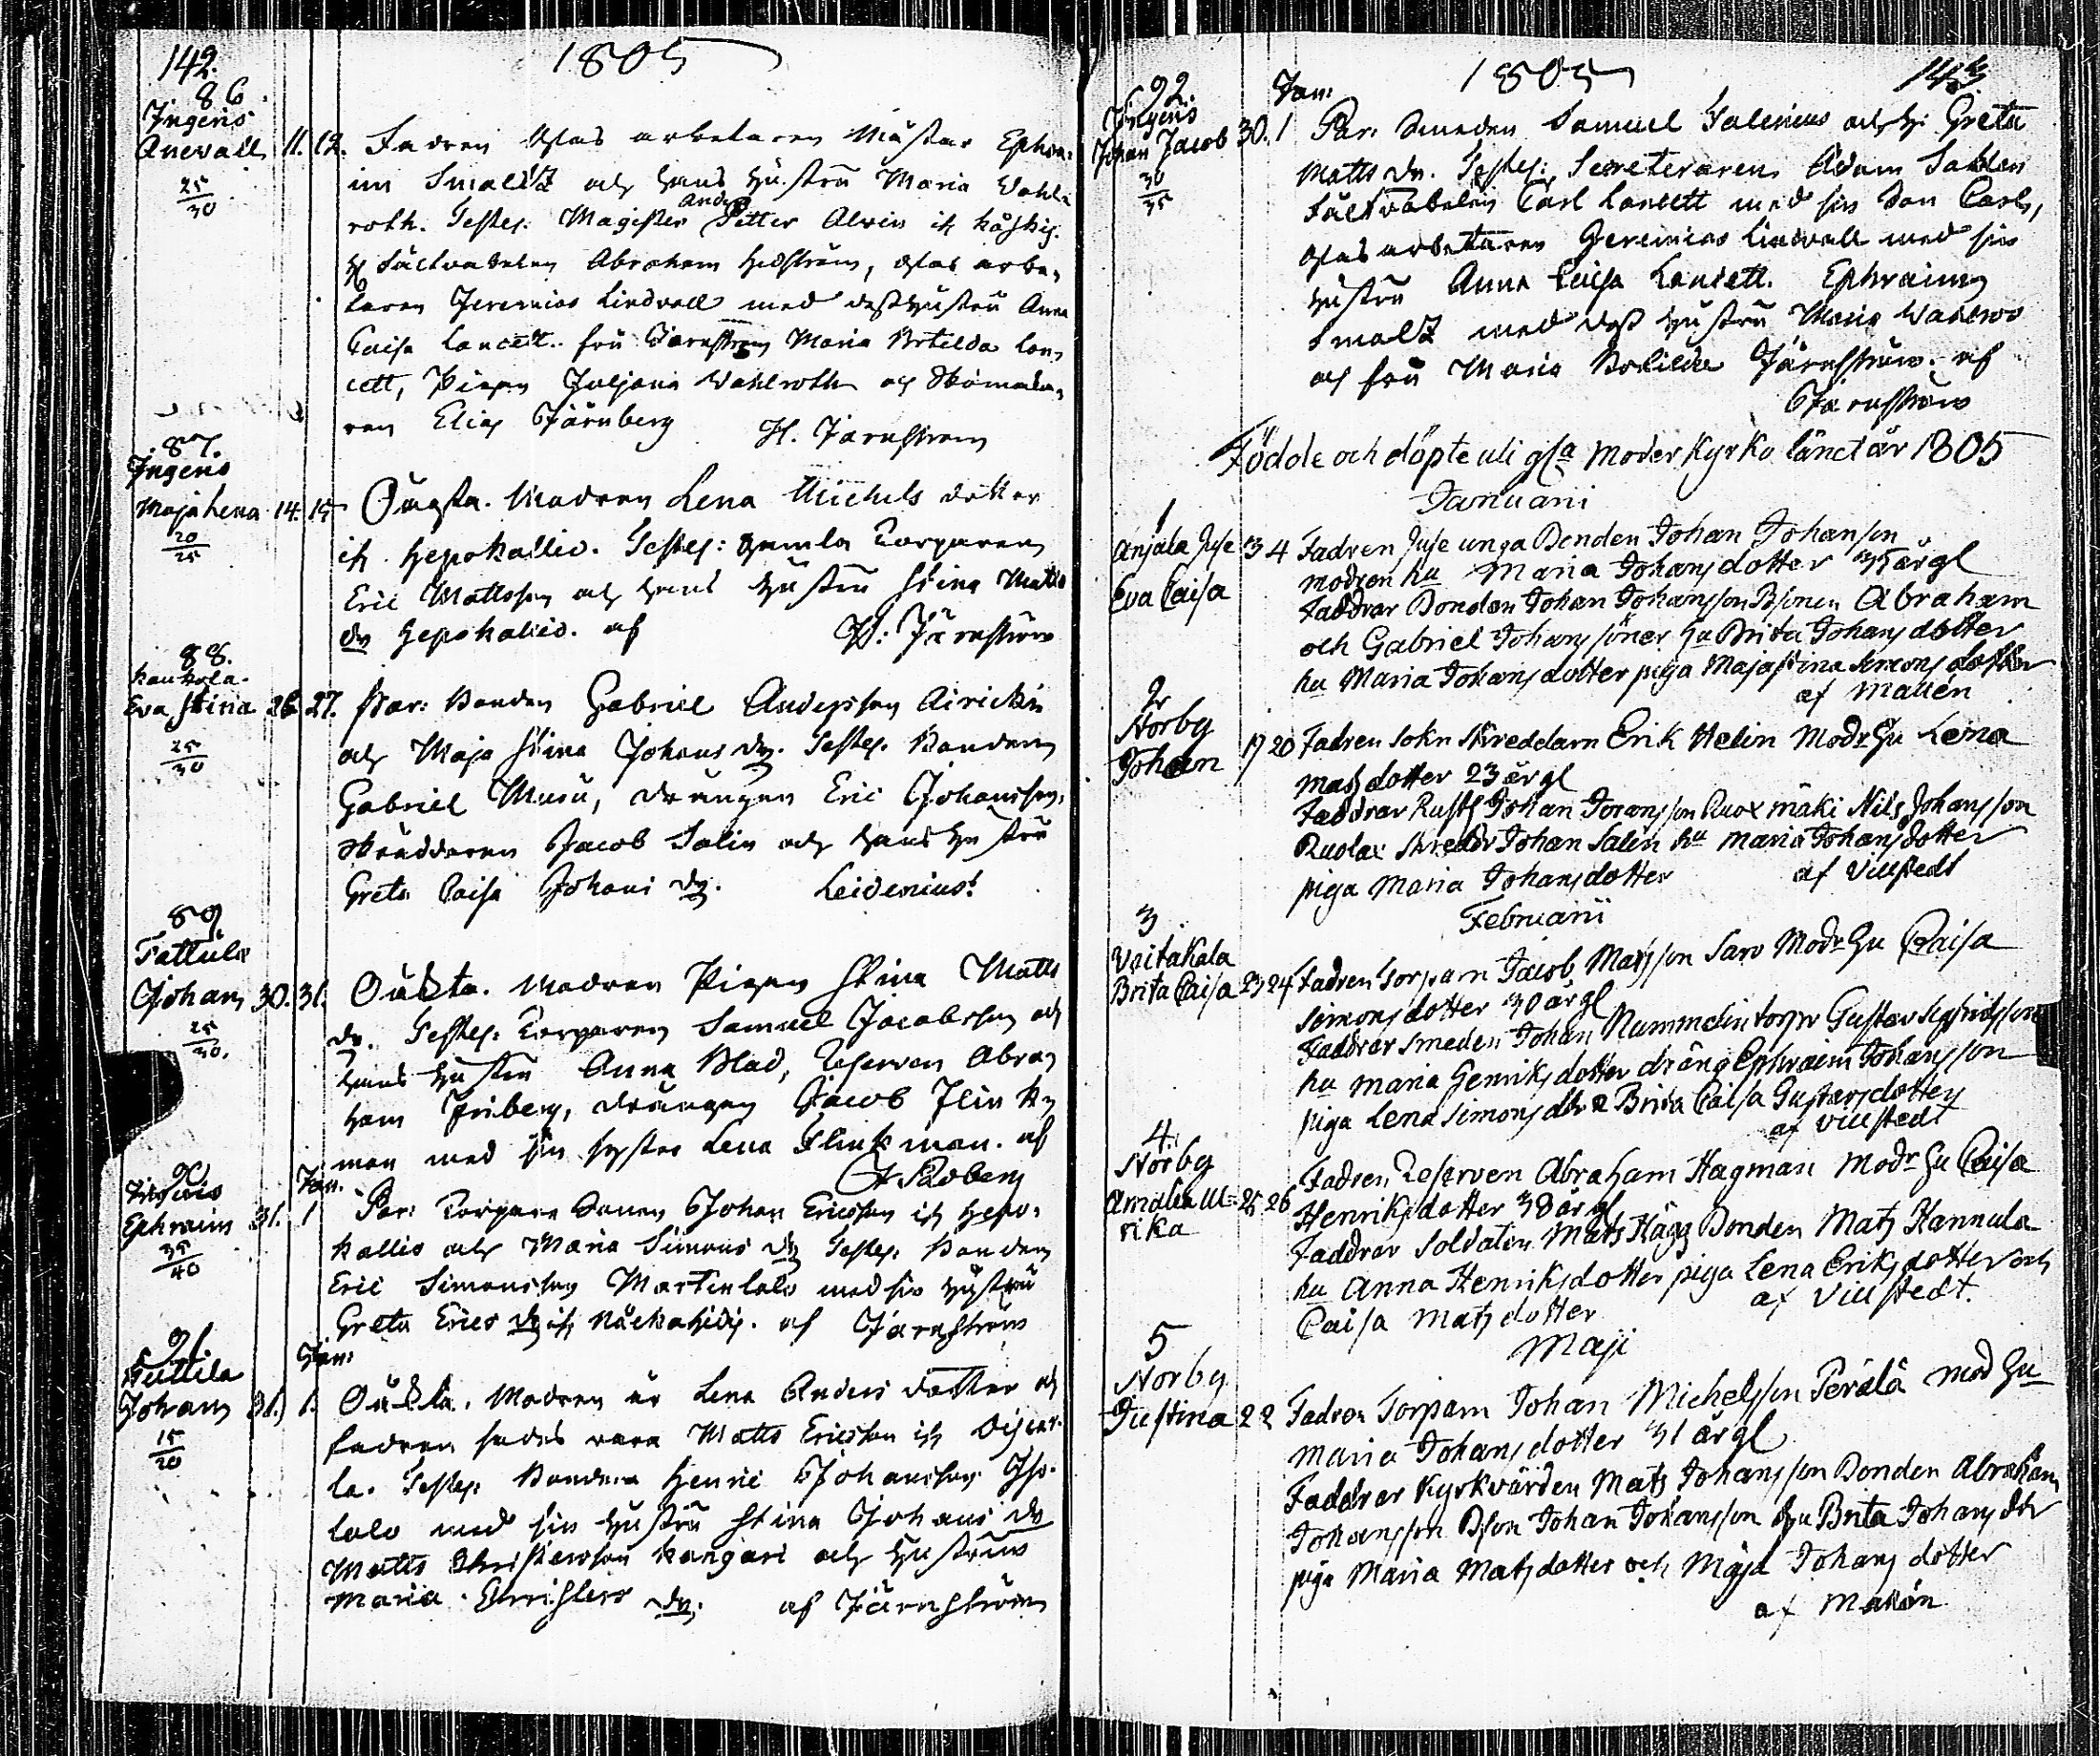 142.
1805
86.
Ingeris
11. 12. Fadren Glas arbetaren Mästar Ephra-
im Smaltz och hans hustru Maria Wahl-
25
30
Anders
roth. Magister Petter Alvin
Abraham Hedström, Glas arbe-
taren Jeremias Lindvall med dess hustru Anna
Caisa Lancett. fru Järnström Maria Botilda Lan-
cett, Pigan Juljana Wahlroth och Skomaka-
ren Elias Stjärnberg
H. Järnström
87.
Ingeris
Maja Lena 14. 15 Oäckta. Modren Lena Michels dotter
20
25
Testes: gamla Torparen
Eric Mattsson och hans hustru Stina Matts
dr af Järnström
88.
Eva Stina 26 27. Par: Bonden Gabriel Andersson
25
30
och Maja Stina Johans dr. Testes. Bonden
Gabriel Muru, drängen Eric Johansson,
Skräddaren Jacob Salin och hans hustru
Greta Caisa Johans dr. Leidenius.
89
Tattula
Johan 30. 31. Oäckta. Modren Pigan Stina Matts
25
30.
dr. Testes: Torparen Samuel Jacobsson och
hans hustru Anna Blad, Reserven Abra-
ham Friberg, drängen Jacob Flink-
man med sin syster Lena Flinkman. af
90
Jan.
Ephraim 31. 1 Par: Torpare Sonen Johan Ericsson
35
40
och Maria Simons dr Testes: Bonden
Eric Simonsson Martinlalo med sin hustru
Greta Erics dr af Järnström
91.
Jan:
Johan 31. 1. Oäckta. Modren är Lena Anders dotter och
15
20
fadren sades vara Matts Ericsson
la. Testes: Bonden Henric Johansson
med sin hustru Stina Johans dr
Matts Christersson Kangari och hustrun
Maria Christers dr. af Järnström
1805
143
92.
Jan:
Ingeris
Johan Jacob 30. 1 Par: Smeden Samuel Salenius och H: Greta
30
35
Matts dr. Testes: Secreteraren Adam Sahlen
Carl Lancett med sin Son Carl,
Glas arbetaren Geremias Lindvall med sin
hustru Anna Caisa Lancett. Ephraim
Smaltz med dess hustru Maria
och fru Maria Botilda Järnström. af
Järnström
Födde och döpte uti gla Moder Kyrko länct år 1805
Januarii
1
Anjala Juse 3 4 Fadren Juse unga Bonden Johan Johansson
Eva Caisa
modren hu Maria Johansdotter årgl
Faddrar Bonden Johan Johansson Bsonen Abraham
och Gabriel Johanssöner hu Brita Johansdotter
hu Maria Johansdotter piga Majastina Simonsdotter
af Malien
2
Norby
Johan 19 20 Fadren Sokn Skreddarn Erik Helin Modr hu Lena
Matsdotter 23 årgl
Faddrar Rusth Johan Joransson Ruox mäki Nils Johansson
Ruolax Skreddr Johan Salin hu Maria Johansdotter
piga Maria Johansdotter af Villstedt
Februarii
3
Voitakala
Brita Caisa 23 24 Fadren Torparn Jacob Matsson Saro Modr hu Caisa
Simonsdotter 30 årgl
Faddrar Smeden Johan Nummelin torpr Gustav Sigfridsson
hu Maria Henriksdotter dräng Ephraim Johansson
piga Lena Simonsdtr o Brita Caisa Gustavsdotter
af Villstedt
4.
Norby
Amalia Ul= 25 26
rika
Fadren Reserven Abraham Hagman Modr hu Caisa
Henriksdotter 38 årgl
Faddrar Soldaten Mats Hägg Bonden Mats Hannula
hu Anna Henriksdotter piga Lena Eriksdotter och
Caisa Matsdotter af Villstedt.
Maji
5
Norby
Justina 22 Fadren Torparn Johan Michelsson Perälä Mod hu
Maria Johansdotter 31 årgl
Faddrar Kyrkvärden Mats Johansson Bonden Abraham
Johansson Bson Johan Johansson hu Brita Johansdtr
piga Maria Matsdotter och Maja Johansdotter
af Malién